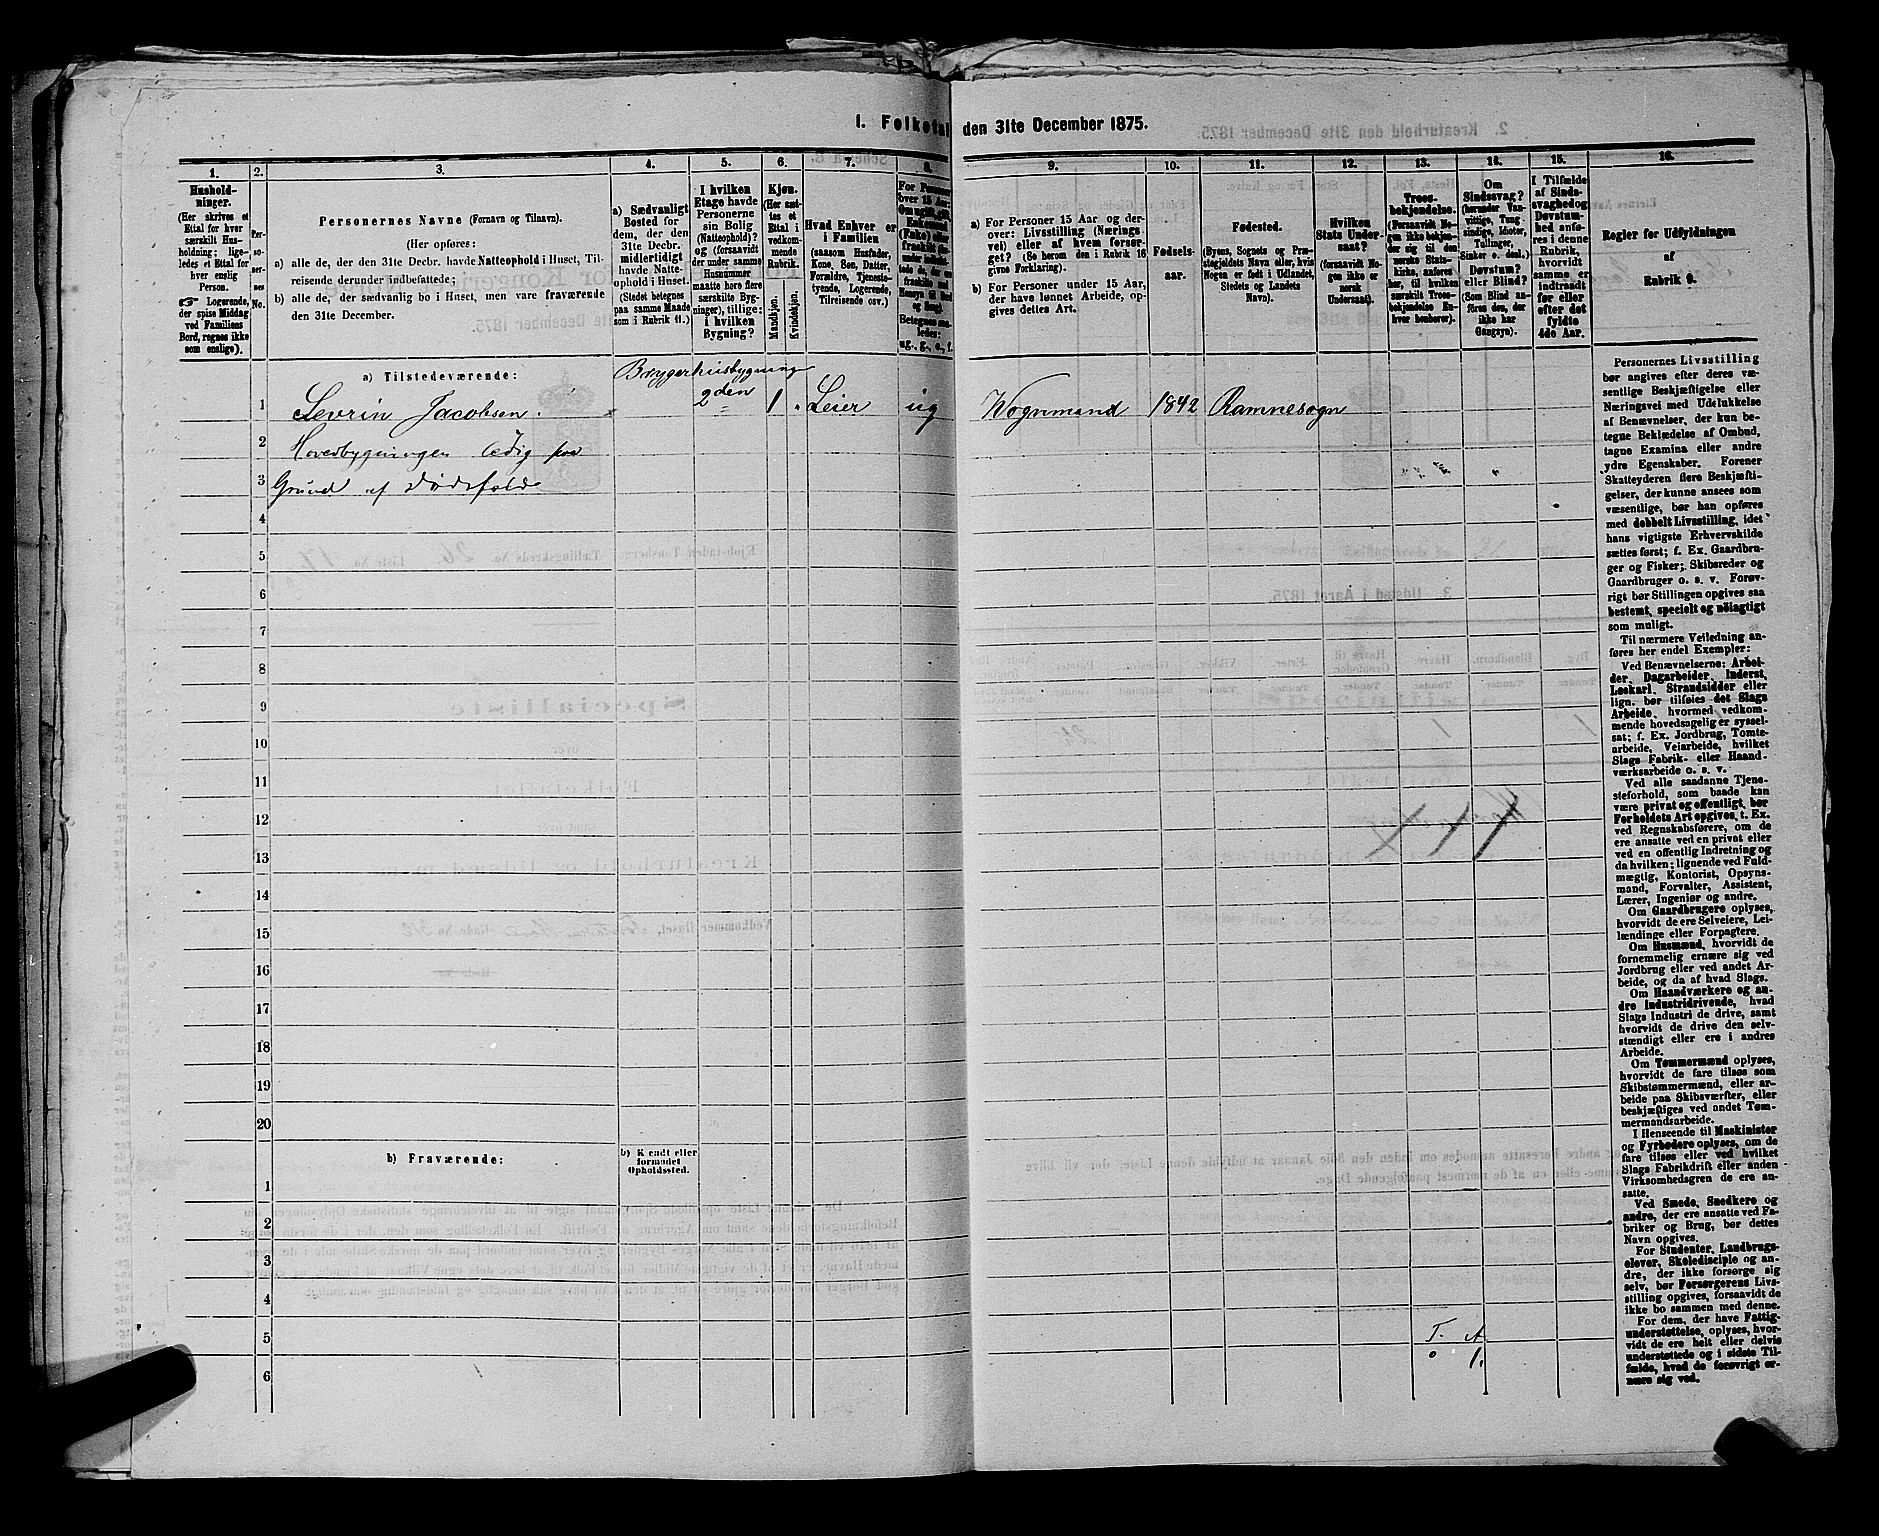 I. Folketal den 31te December 1875.
1.
Hushold-
ninger.
(Her skrives et
Ettal for hver
særskilt Hus-
holdning; lige-
ledes et Ettal for
hver enslig
Person.
Logerende,
der spise Middag
ved Familiens
Bord, regnes ikke
som enslige).
2.
Per-
so-
ner-
nes
No.
3.
Personernes Navne (Fornavn og Tilnavn).
(Her opføres:
a) alle de, der den 31te Decbr. havde Natteophold i Huset, Til-
reisende derunder indbefattede;
b) alle de, der sædvanlig bo i Huset, men vare fraværende
den 31te December.
4.
a) Sædvanligt
Bosted for
dem, der den
31te Decbr.
midlertidigt
havde Natte-
ophold i Huset.
(Stedet betegnes
paa samme Maade
som i Rubrik 11.)
5.
I hvilken
Etage havde
Personerne
sin Bolig
(Natteophold)?
og (forsaavidt
der under samme
Husnummer
maatte høre flere
særskilte Byg-
ninger), tillige:
i hvilken
Bygning?
6.
Kjøn.
(Her sæt-
tes et
Ettal i
vedkom-
mende
Rubrik.
Mandkjøn.
Kvindekjøn.
7.
Hvad Enhver er
i Familien
(saasom Husfader,
Kone, Søn, Datter,
Forældre, Tjeneste-
tyende, Logerende,
Tilreisende osv.)
8.
For Personer
over 15 Aar:
Om ugift, gift,
Enkemand
(Enke) eller
fraskilt
Betegnes saa-
ledes:
ug., g., e., f.
9.
a) For Personer 15 Aar og der-
over: Livsstilling (Nærings-
vei) eller af hvem forsør-
get? (Se herom den i Rubrik 16
givne Forklaring).
b) For Personer under 15 Aar,
der have lønnet Arbeide, op-
gives dettes Art.
10.
Fødsels-
aar.
11.
Fødested.
(Byens, Sognets og Præ-
stegjeldets Navn eller, hvis
Nogen er født i Udlandet,
Stedets og Landets
Navn).
12.
Hvilken
Stats Under-
saat?
(forsaavidt No-
gen ikke er
norsk
Undersaat).
13.
Troes-
bekjendelse.
(Forsaavidt No-
gen ikke bekjen-
der sig til den
norske Stats-
kirke, anføres
her, til hvilken
særskilt Troes-
bekjendelse En-
hver henhører).
14.
Om
Sindssvag?
(herunder Van-
vittige, Tung-
sindige, Idioter,
Tullinger,
Sinker o. desl.)
Døvstum?
eller Blind?
(Som Blind an-
føres den, der
ikke har
Gangsyn).
15.
I Tilfælde
af Sinds-
svaghed og
Døvstum-
hed anfø-
res i denne
Rubrik,
hvorvidt
samme er
indtraadt
før eller
efter det
fyldte
4de Aar.
16.
Regler for Udfyldningen
af
Rubrik 9.
a) Tilstedeværende:
Bryggerhusbygning
1 Sevrin Jacobsen. 2den 1 Leier ug Vognmand 1842 Ramnesogn
2 Hovedbygningen ledig paa
3 Grund af Dødsfald
4
5
6
7
8
9
10
11
12
13
14
15
16
17
18
19
20
b) Fraværende:
b) Kjendt eller
formodet
Opholdssted.
1
2
3
4
5
6
T. A
0 1.
Personernes Livsstilling
bør angives efter deres væ-
sentlige Beskjæftigelse eller
Næringsvei med Udelukkelse
af Benævnelser, der kun be-
tegne Beklædelse af Ombud,
tagne Examina eller andre
ydre Egenskaber. Forener
Skatteyderen flere Beskjæfti-
gelser, der kunne ansees som
væsentlige, bør han opføres
med dobbelt Livsstilling, idet
hans vigtigste Erhvervskilde
sættes først; f. Ex. Gaardbru-
ger og Fisker; Skibsreder og
Gaardbruger o. s. v. Forøv-
rigt bør Stillingen opgives saa
bestemt, specielt og nøiagtigt
som muligt.
Til nærmere Veiledning an-
føres her endel Exempler:
Ved Benævnelserne: Arbei-
der, Dagarbeider, Inderst,
Løskarl, Strandsidder eller
lign. bør tilføies det Slags
Arbeide, hvormed vedkom-
mende hovedsagelig er syssel-
sat; f. Ex. Jordbrug, Tomte-
arbeide, Veiarbeide, hvilket
Slags Fabrik- eller Haand-
værksarbeide o. s. v.
Ved alle saadanne Tjene-
steforhold, som baade kan
være privat og offentligt, bør
Forholdets Art opgives, t. Ex.
ved Regnskabsførere, om de
ere ansatte ved en privat eller
ved en offentlig Indretning og
da hvilken; lignende ved Fuld-
mægtig, Kontorist, Opsyns-
mand, Forvalter, Assistent,
Lærer, Ingeniør og andre.
Om Gaardbrugere oplyses,
hvorvidt de ere Selveiere, Lei-
lændinge eller Forpagtere.
Om Husmænd, hvorvidt de
fornemmelig ernære sig ved
Jordbrug eller ved andet Ar-
beide, og da af hvad Slags.
Om Haandværkere og an-
dre Industridrivende, hvad
Slags Industri de drive, samt
hvorvidt de drive den selv-
stændigt eller ere i andres
Arbeide.
Om Tømmermænd oplyses,
hvorvidt de fare tilsøs som
Skibstømmermænd, eller ar-
beide paa Skibsværfter, eller
beskjæftiges ved andet Tøm-
mermandsarbeide.
I Henseende til Maskinister
og Fyrbødere oplyses, om de
fare tilsøs eller ved hvilket
Slags Fabrikdrift eller anden
Virksomhedsgren de ere an-
satte.
Ved Smede, Snedkere og
andre, der ere ansatte ved Fa-
briker og Brug, bør dettes
Navn opgives.
For Studenter, Landbrugs-
elever, Skoledisciple og an-
dre, der ikke forsørge sig
selv, bør Forsørgerens Livs-
stilling opgives, forsaavidt de
ikke bo sammen med denne.
For dem, der have Fattig-
understøttelse, oplyses, hvor-
vidt de ere helt eller delvis
understøttede og i sidste Til-
fælde, hvad de forøvrigt er-
nære sig ved.